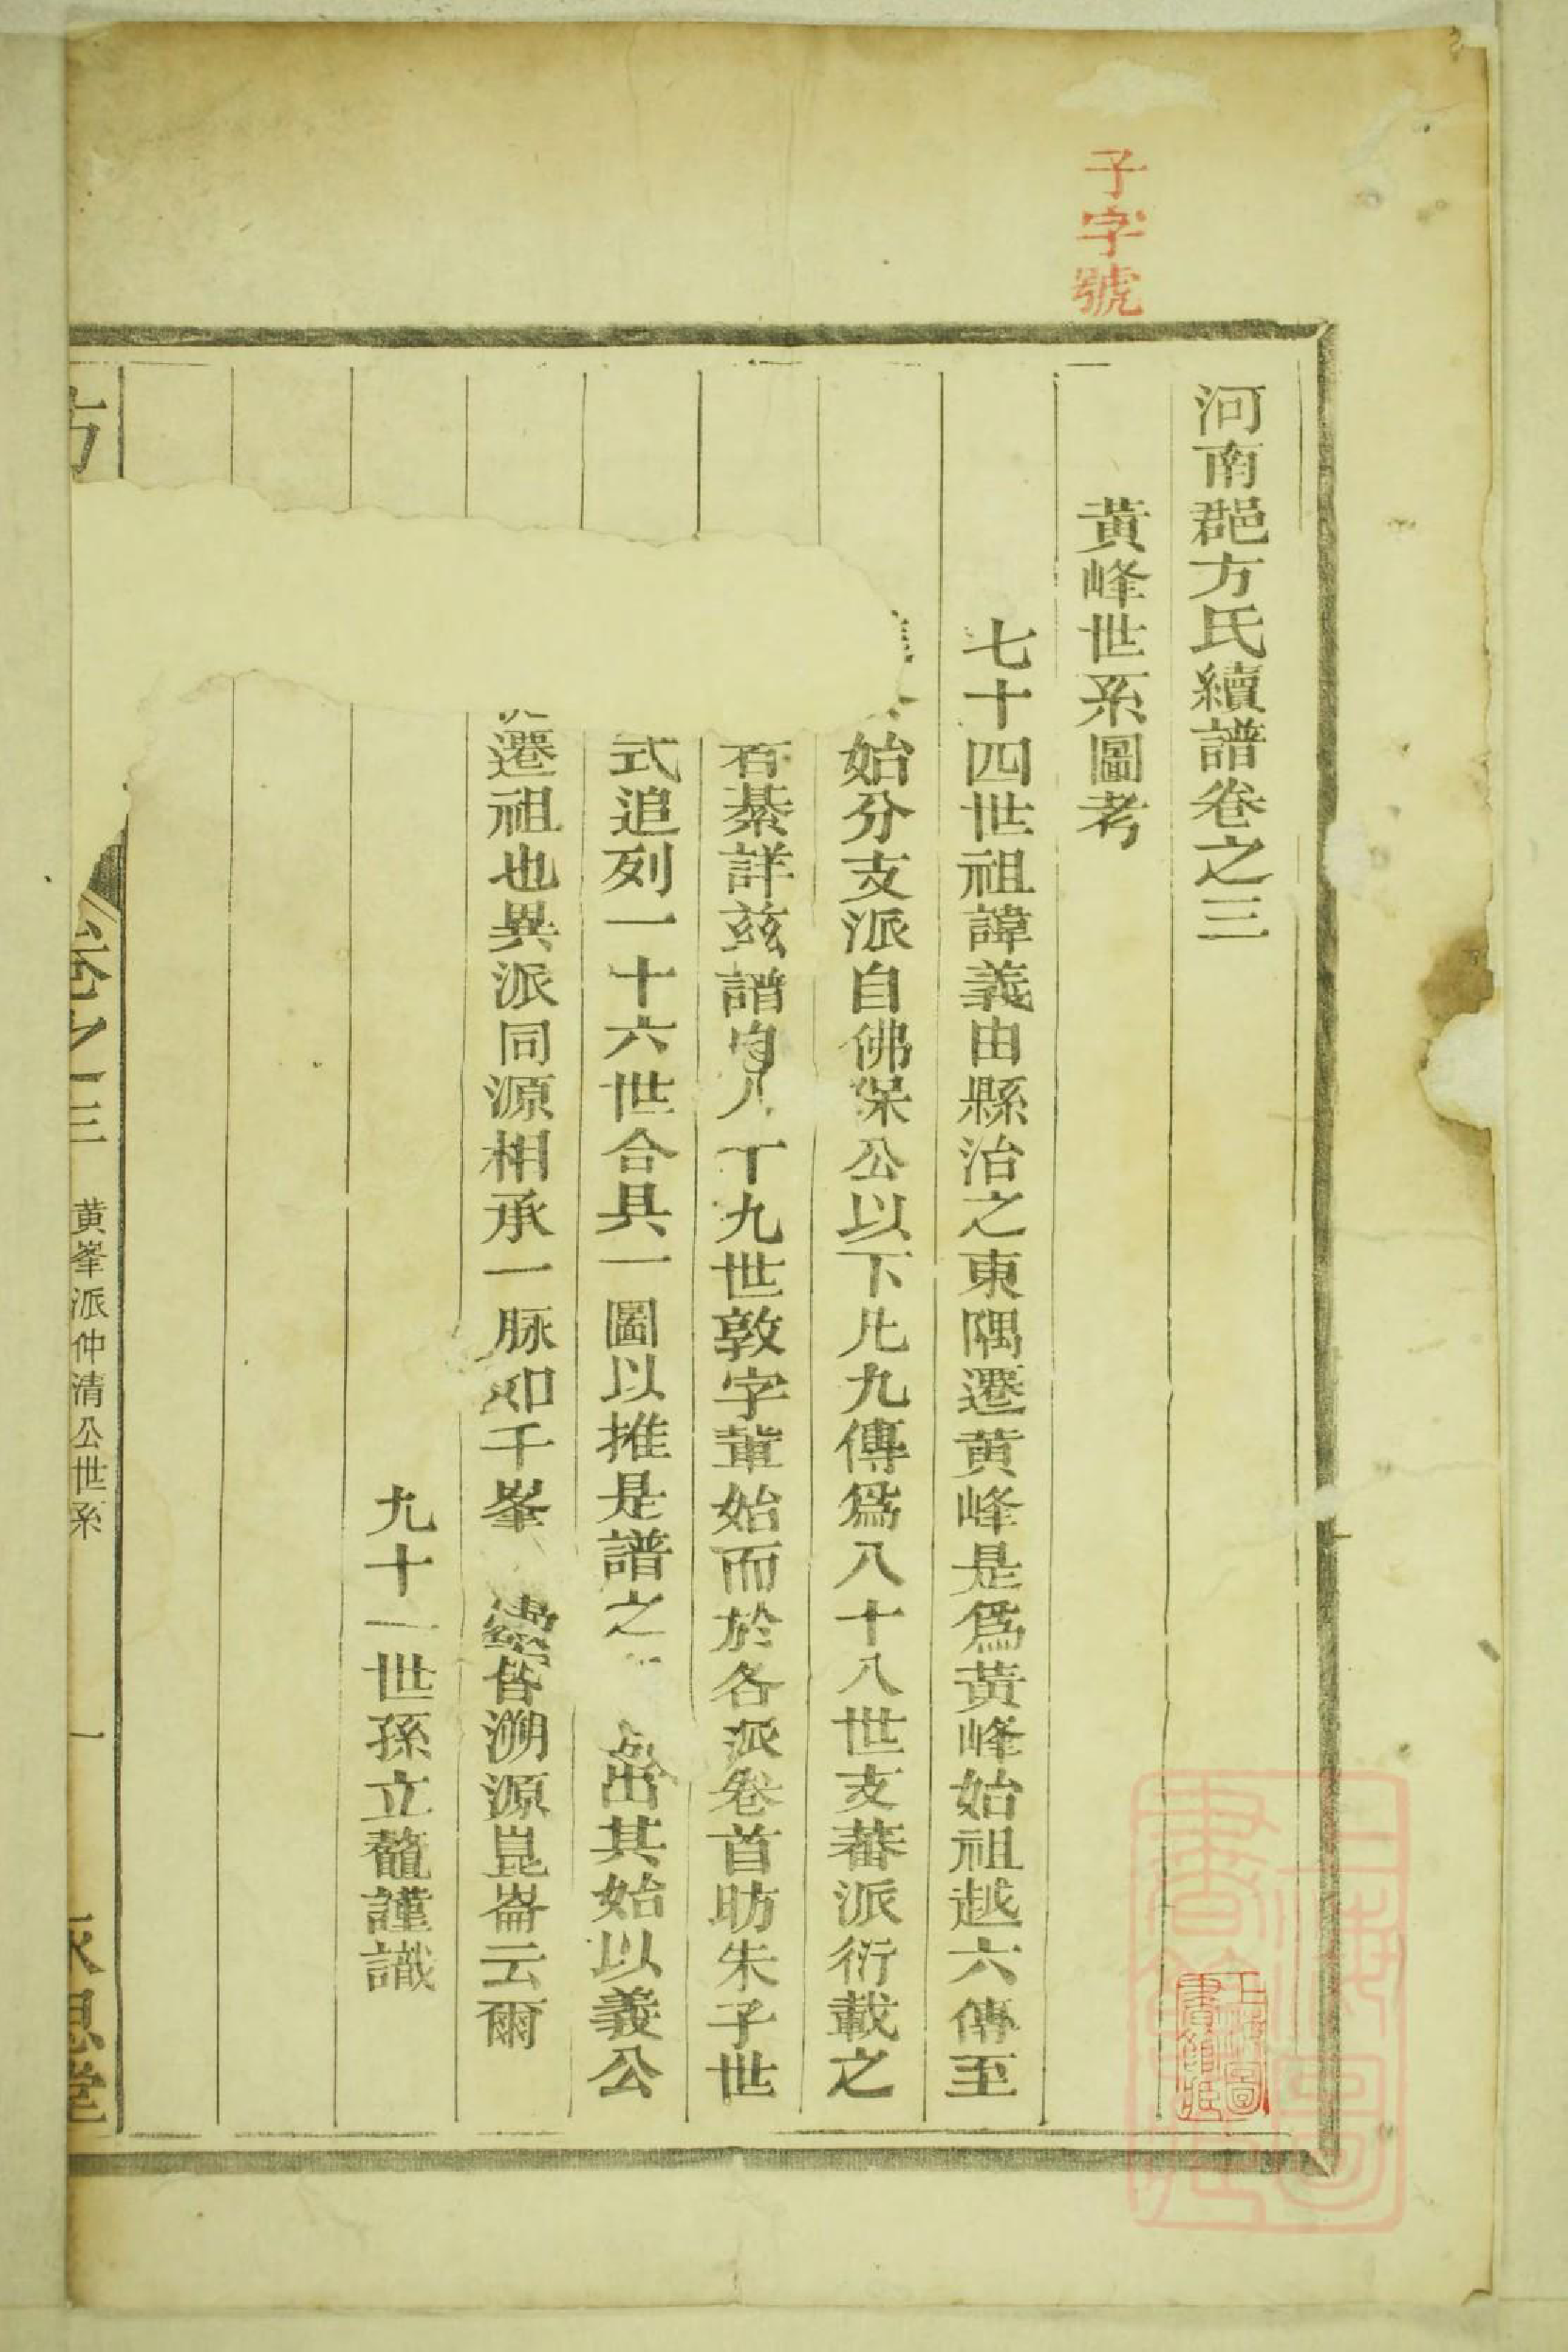 子字號
河南郡方氏續譜卷之三
黃峰世系圖考
七十四世祖諱義由縣治之東隅遷黃峰是爲黃峰始祖越六傳至
始分支派自佛保公以下凡九傳爲八十八世支蕃派衍載之
者綦詳兹譜自八十九世敦字輩始而於各派卷首昉朱子世
式追列一十六世合具一圖以推是譜之出其始以義公
遷祖也異派同源相承一脉如千峯皆溯源崑崙云爾
九十一世孫立鼇謹識
方
卷之三 黃峯派仲清公世系 一 永思堂
上海圖書館藏
上海圖書館藏